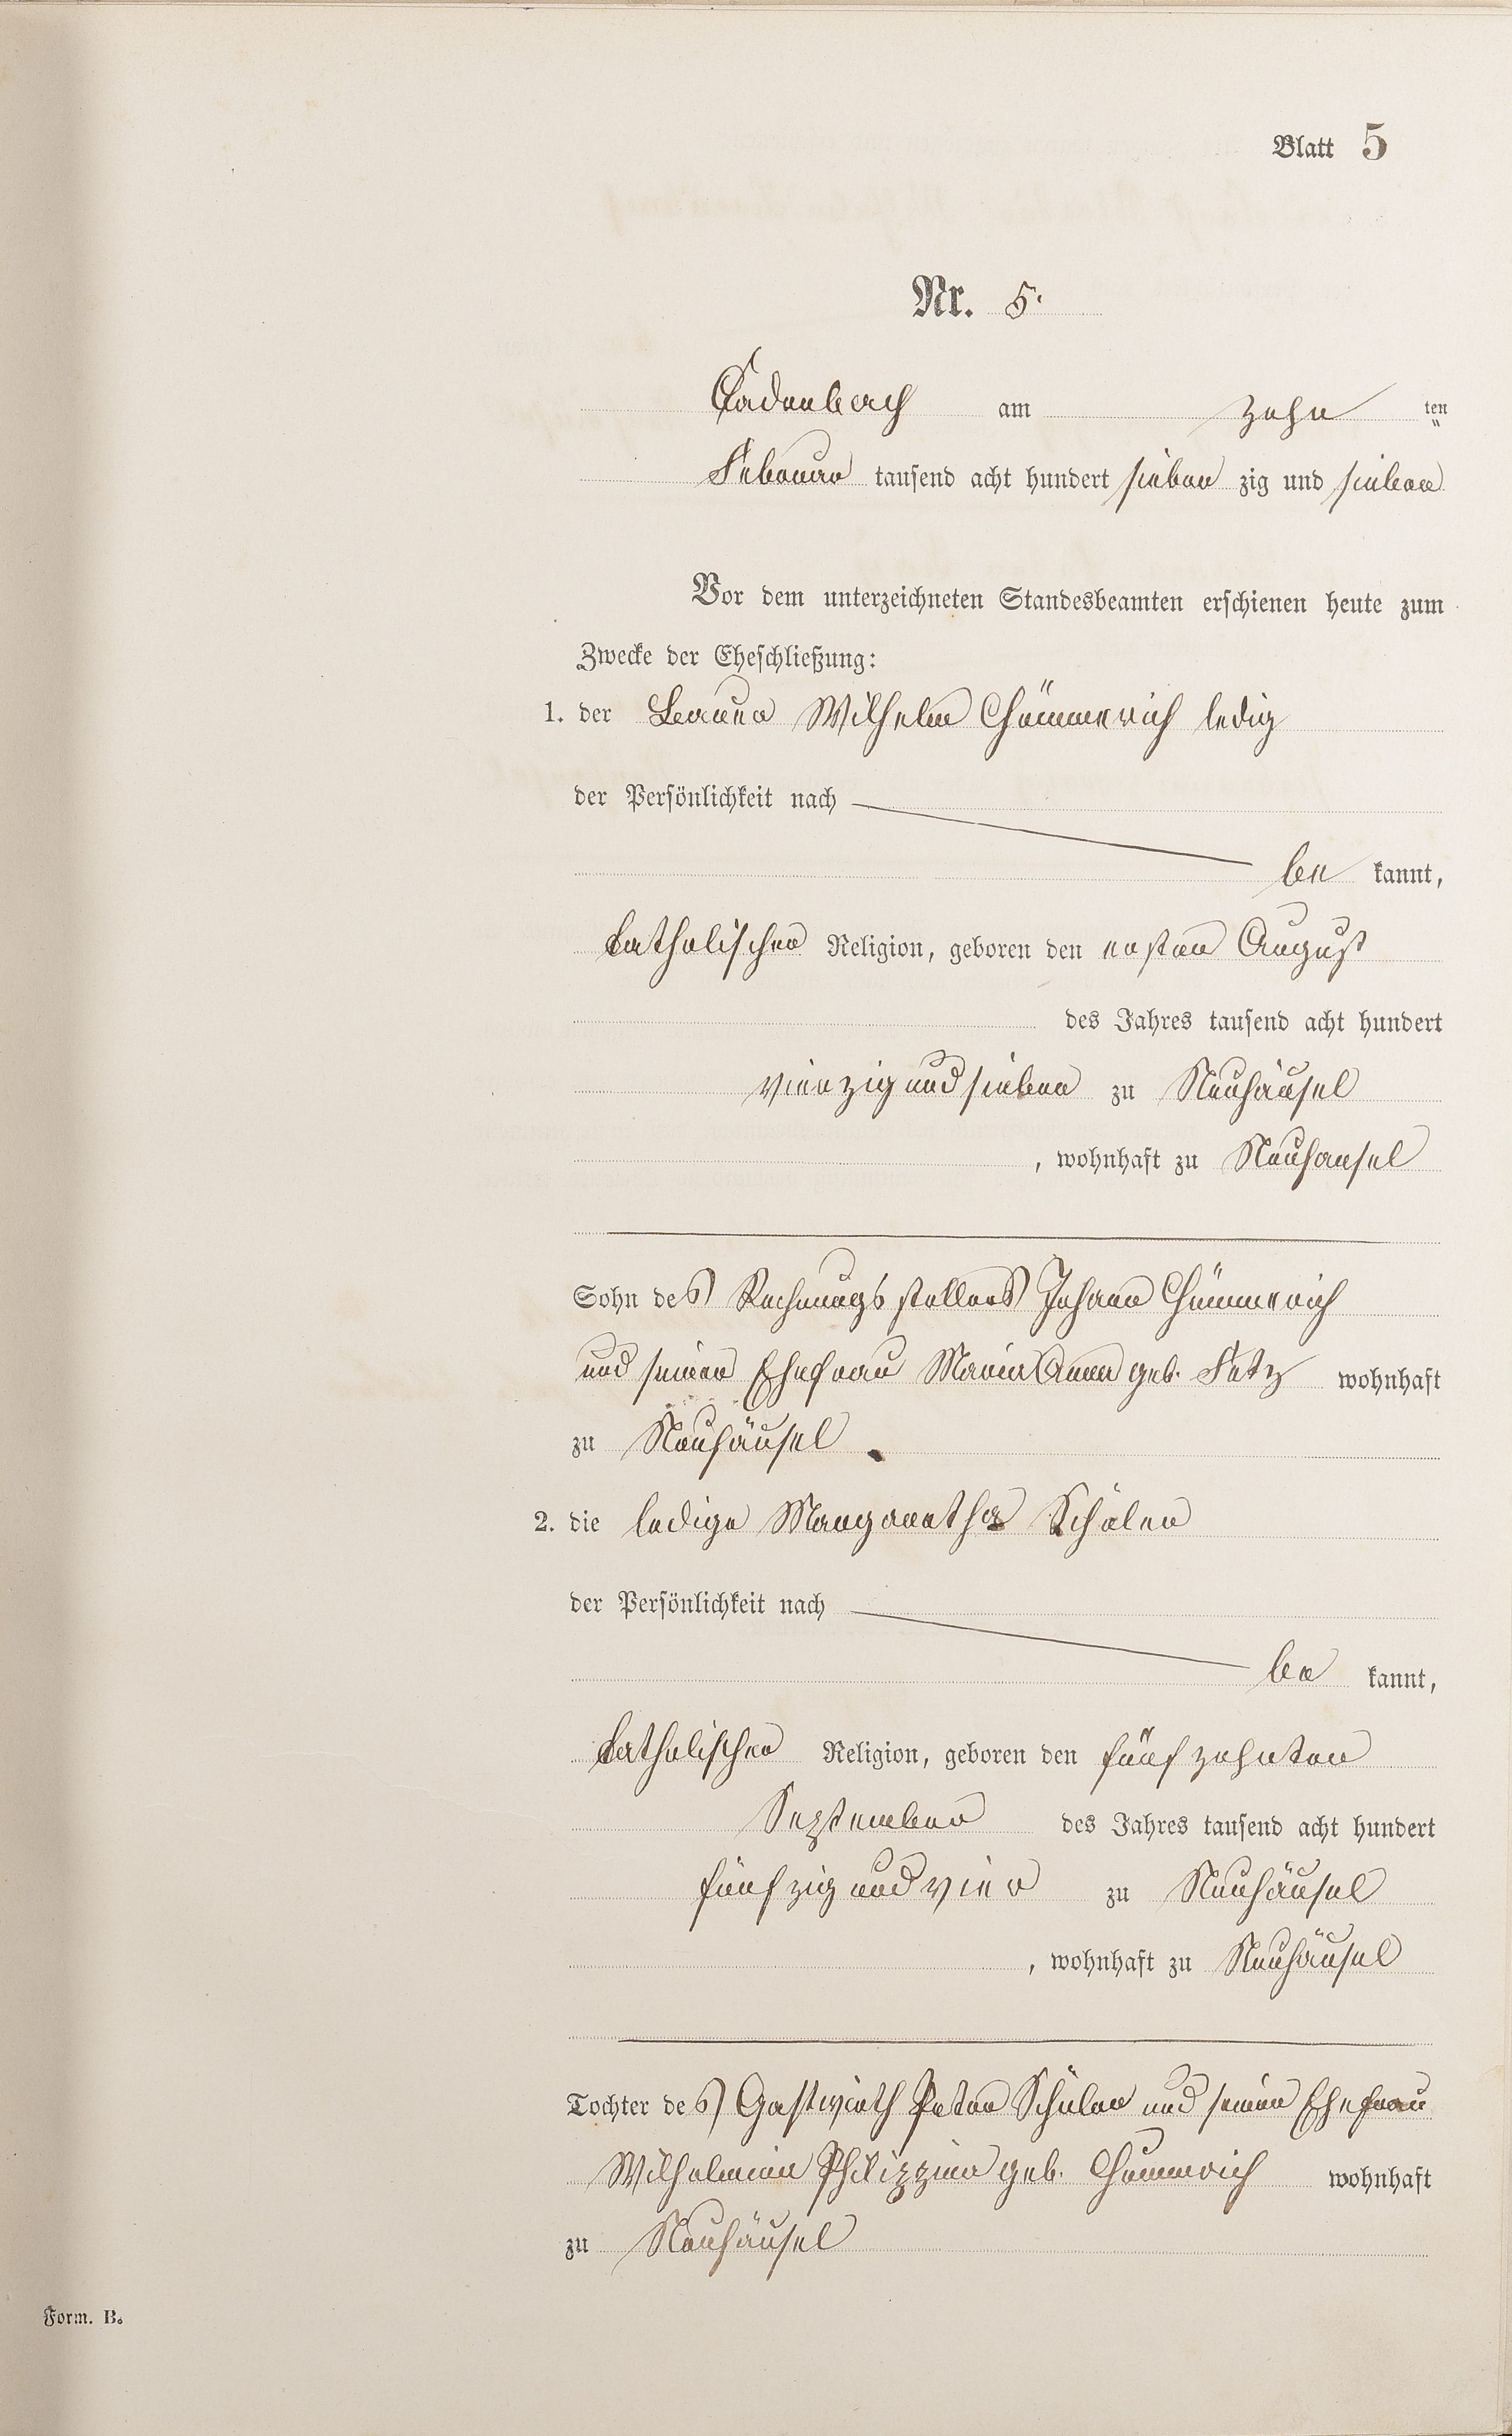 Blatt 5
Nr. 5.
Cadenbach am zehn ten
Februar tausend acht hundert sieben zig und sieben
Vor dem unterzeichneten Standesbeamten erschienen heute zum
Zwecke der Eheschließung:
1. der Bauer Wilhelm Chümmerich ledig
der Persönlichkeit nach
be kannt,
katholischer Religion, geboren den ersten August
des Jahres tausend acht hundert
vierzig und sieben zu Neuhäusel
, wohnhaft zu Neuhäusel
Sohn des Rechnungsstellers Johann Chümmerich
und seiner Ehefrau Maria Anna geb. Fetz wohnhaft
zu Neuhäusel
2. die ledige Margaretha Schüler
der Persönlichkeit nach
be kannt,
katholischer Religion, geboren den fünfzehnten
September des Jahres tausend acht hundert
fünfzig und vier zu Neuhäusel
, wohnhaft zu Neuhäusel
Tochter des Gastwirth Peter Schüler und seiner Ehefrau
Wilhelmina Philippina geb. Chümmerich wohnhaft
zu Neuhäusel
Form. B.